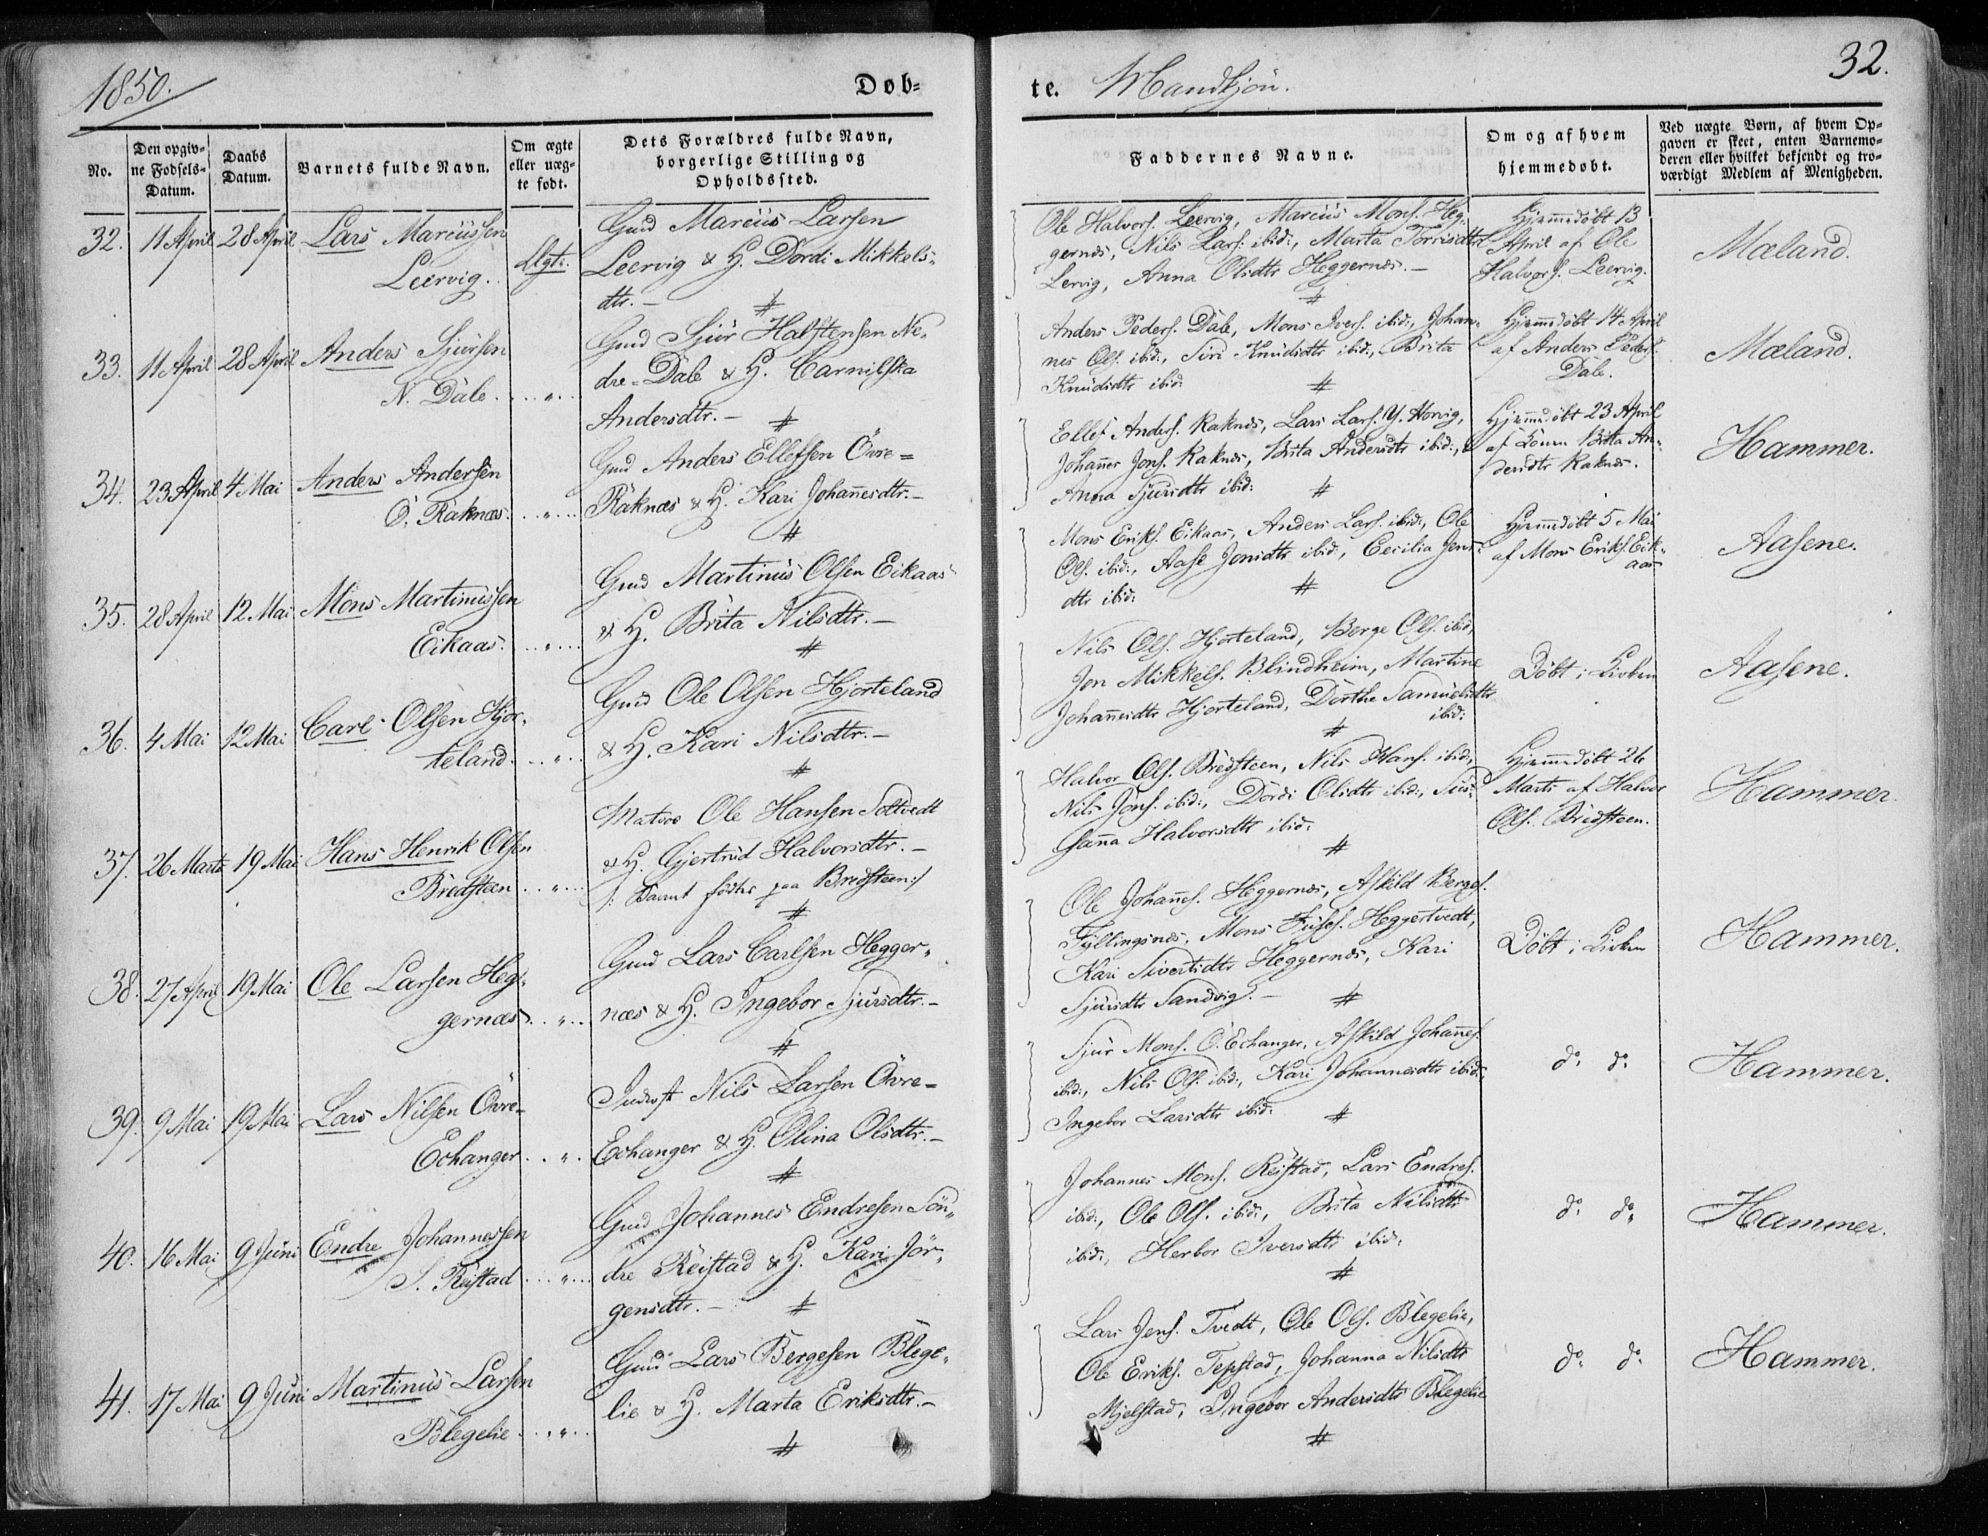 1850.
Døb-
te. Mandkjön.
32.
No.
Den opgiv-
ne Fødsels-
Datum.
Daabs
Datum.
Barnets fulde Navn.
Om ægte
eller uæg-
te født.
Dets Forældres fulde Navn,
borgerlige Stilling og
Opholdssted.
Faddernes Navne.
Om og af hvem
hjemmedøbt.
Ved uægte Børn, af hvem Op-
gaven er skeet, enten Barnemo-
deren eller hvilket bekjendt og tro-
værdigt Medlem af Menigheden.
32. 11 April 28 April Lars Marcussen
Leervig.
Ægte.
Gmd Marcus Larsen
Leervig & H. Dordi Mikkels-
dtr. -
Ole Halvors. Leervig, Marcus Mons. Heg-
gernes, Nils Lars. ibid:, Marta Torrisdtr
Lervig, Anna Olsdtr Heggernes. -
Hjemmedöbt 13
April af Ole
Halvors. Leervig.
Mæland.
33. 11 April 28 April Anders Sjursen
N. Dale. . . " . .
Gmd Sjur Halstensen Ne-
dre-Dale & H. Carnilska
Andersdtr. -
Anders Peders. Dale, Mons Ivers. ibid:, Johan-
nes Ols. ibid:, Siri Knudsdtr ibid:, Brita
Knudsdtr ibid:
Hjemmedöbt 14 April
af Anders Peders.
Dale.
Mæland.
34. 23 April 4 Mai Anders Andersen
Ö. Raknæs. . . " . .
Gmd Anders Ellefsen Övre-
Raknæs & H. Kari Johannesdtr. -
Ellef Anders. Raknes, Lars Lars. Y. Horvig,
Johannes Jons. Raknes, Brita Andersdtr ibid:,
Anna Sjursdtr ibid:
Hjemmedöbt 23 April
af Brita An-
dersdtr Raknes.
Hammer.
35. 28 April 12 Mai Mons Martinussen
Eikaas. . . " . .
Gmd Martinus Olsen Eikaas
& H. Brita Nilsdtr. -
Mons Eriks. Eikaas, Anders Lars. ibid:, Ole
Ols. ibid:, Aase Jonsdtr ibid, Cecilia Jens-
dtr ibid:
Hjemmedöbt 5 Mai
af Mons Eriks. Eik-
aas
Aasene.
36. 4 Mai 12 Mai Carl Olsen Hjor-
teland. . . " . .
Gmd Ole Olsen Hjorteland
& H. Kari Nilsdtr. -
Nils Ols. Hjorteland, Börge Ols. ibid,
Jon Mikkels. Blindheim, Martine
Johannesdtr Hjorteland, Dorthe Samuelsdtr
ibid:
Döbt i Kirken
Aasene.
37. 26 Marts 19 Mai Hans Henrik Olsen
Bredsteen . . " . .
Matros Ole Hansen Soltvedt
& H. Gjertrud Halvorsdtr. -
/: Barnet födtes paa Bredsteen :/
Halvor Ols. Bredsteen, Nils Hans. ibid:,
Nils Jons. ibid:, Dordi Olsdtr ibid:, Sus-
sanna Halvorsdtr ibid:
Hjemmedöbt 26
Marts af Halvor
Ols. Bredsteen.
Hammer.
38. 27 April 19 Mai Ole Larsen Heg-
gernæs. . . " . .
Gmd Lars Carlsen Hegger-
næs & H. Ingebor Sjursdtr. -
Ole Johannes. Heggernes, Askild Berges.
Fyllingsnes, Mons Heggertvedt,
Kari Sivertsdtr Heggernes, Kari
Sjursdtr Sandvig. -
Döbt i Kirken
Hammer.
39. 9 Mai 19 Mai Lars Nilsen Övre-
Echanger. . . " .
Inderst Nils Larsen Övre-
Echanger & H. Olina Olsdtr. -
Sjur Mons. Ö. Echanger, Askild Johannes.
ibid:, Nils Ols. ibid:, Kari Johannesdtr ibid:,
Ingebor Larsdtr ibid:
do. do.
Hammer.
40. 16 Mai 9 Juni Endre Johannessen
S. Reistad . . " . .
Gmd Johannes Endresen Sön-
dre Reistad & H. Kari Jör-
gensdtr. -
Johannes Mons. Reistad, Lars Endres.
ibid:, Ole Ols. ibid:, Brita Nilsdtr
ibid:, Herbor Iversdtr ibid:
do. do.
Hammer.
41. 17 Mai 9 Juni Martinus Larsen
Blegelie. . . " . .
Gmd Lars Bergesen Blege-
lie & H. Marta Eriksdtr. -
Lars Jens. Tvedt, Ole Ols. Blegelie,
Ole Eriks. Tepstad, Johanna Nilsdtr
Mjelstad, Ingebor Andersdtr Blegelie
do. do.
Hammer.